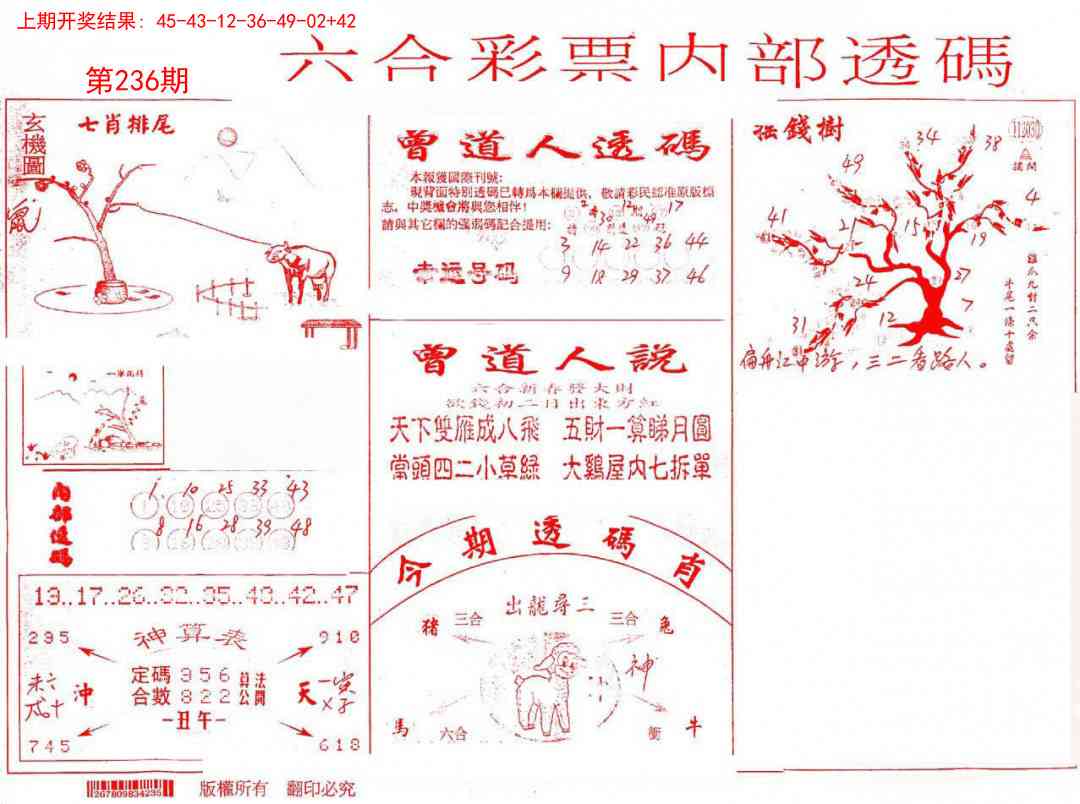 上期开奖结果: 45-43-12-36-49-02+42
六合彩票内部透碼
第236期
玄機圖
七肖排尾
鼠
曾道人透碼
本報獲國際刊號:
現背面特別透碼已轉爲本欄提供，敬請彩民認准原版標
志。中獎機會將與您相伴!
請與其它欄的强弱碼配合提用:
3 14 22 36 44
幸运号码
9 18 29 37 46
搖錢樹
34 38
49
4
41 21 15 19
24 27
7
31 12
扁舟江中游，三二看路人。
曾道人說
六合新春發大財
欲錢初二日出東方紅
天下雙雁成八飛 五財一算睇月圓
當頭四二小草緑 大鷄屋内七拆單
内部透碼
1 10 25 33 43
8 16 28 39 48
今期透碼肖
出龍尋三
猪 三合 三合 兔
神
馬 六合 衝 牛
13..17..26..32..35..40..42..47
295 神算表 910
定碼 956 算法
合數 822 公開
冲 天
-丑午-
745 618
267809834235
版權所有 翻印必究